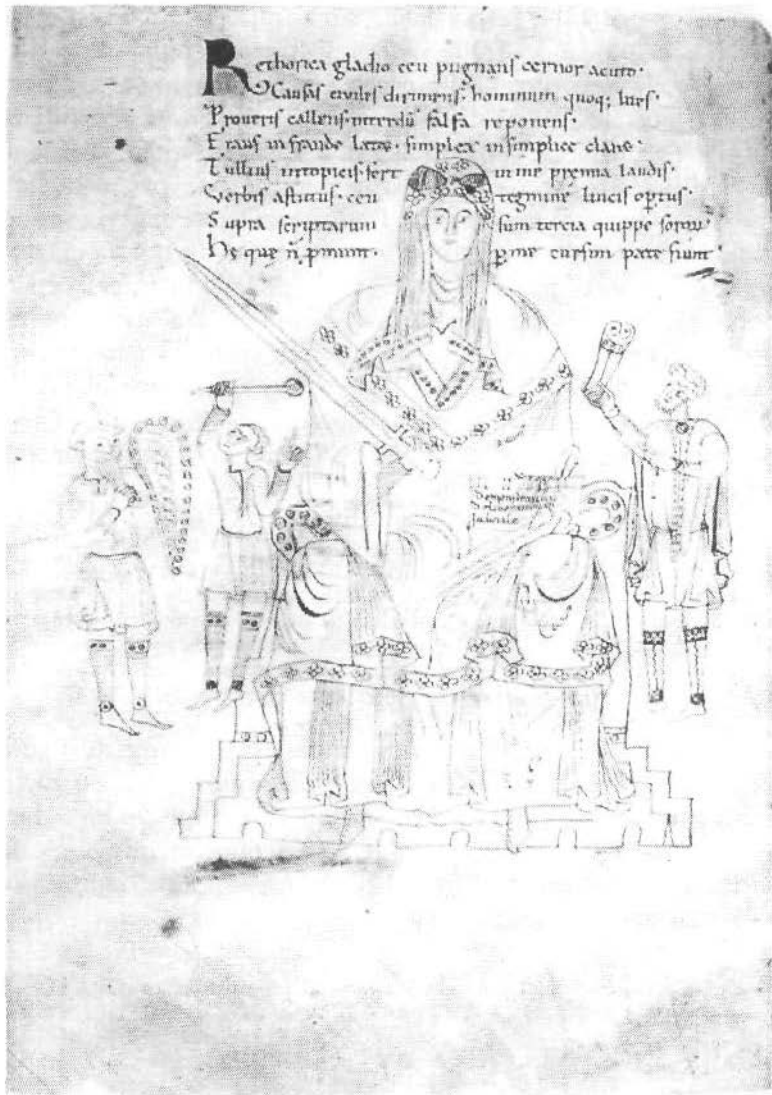 Rethorica gladio ceu pugnans cernor acuto·
Causas civiles dirimens· hominum quoq; lites·
Proveris callens· interdū falsa reponens·
Fraus in fraude latet· simplex in simplice clane·
Tullius in topicis· fert in me premia laudis·
Verbis astutus· ceu tegmine lincis optus·
Supra scriptarum sum tercia quippe sororū·
H̅s que n̄ pmunt· p me cursim pate fiunt·
Demonstrativū
Deliberativū
Iudiciale